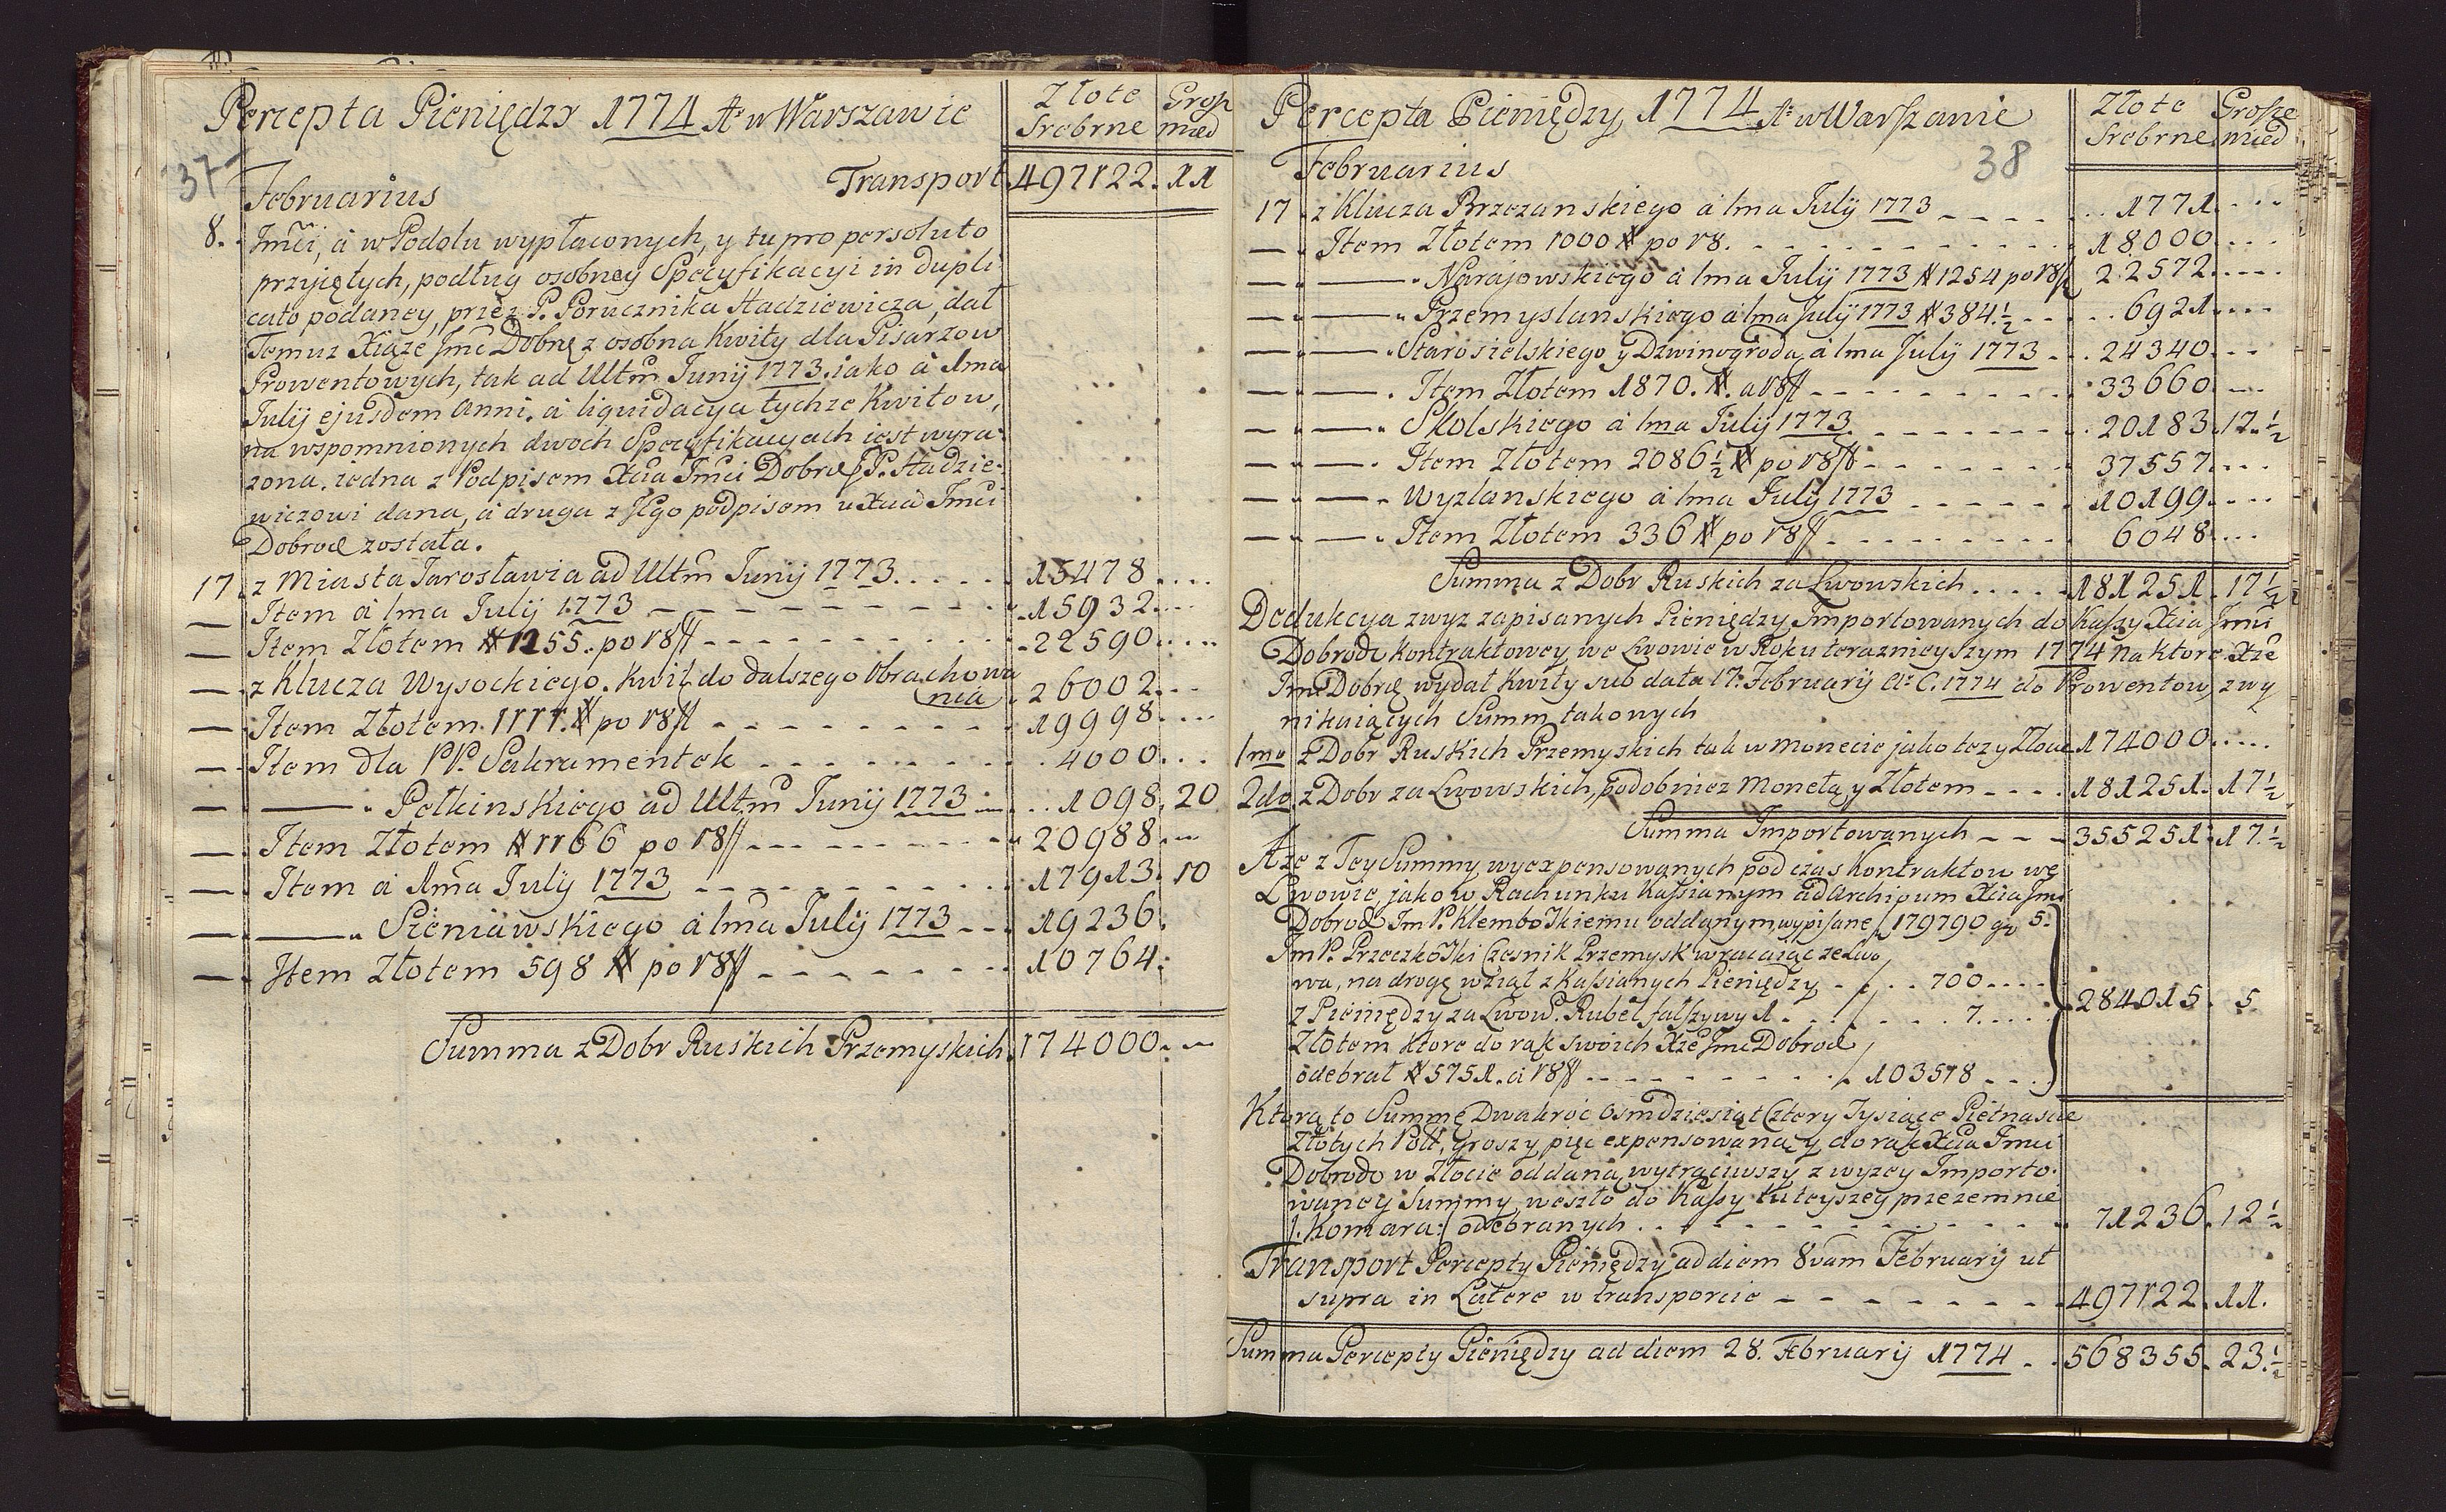 Percepta Pieniędzy 1774 Aº w Warszawie
Złote Grosz
Srebrne mied
37
Februarius Transport 497122. 11
8. Jmci, a w Podolu wypłaconych, y tu pro persoluto
przyjętych, podług osobney Specyfikacyi in dupli
cato podaney, przez P. Porucznika Hadziewicza, dał
Temuz Xiąze Jmć Dobrę z osobna Kwity dla Pisarzow
Prowentowych, tak ad Ultm Junij 1773. iako a 1ma
Julij ejusdem Anni. a liquidacya tychze Kwitow,
na wspomnionych dwoch Specyfikacyach iest wyra-
zona. iedna z Podpisem Xcia Jmci Dobrd P. Hadzie-
wiczowi dana, a druga z Jego podpisem u Xcia Jmci
Dobrod została.
17. z Miasta Jarosławia ad Ultm Junij 1773. 13478
— Item a 1ma Julij 1773 15932
— Item Złotem # 1255. po 18 ff 22590
— z Klucza Wysockiego. Kwit do dalszego Obrachowa
nia 26002
— Item Złotem. 1111. # po 18 ff 19998
— Item dla PP. Sakramentek 4000
— — Pełkinskiego ad Ultm Junij 1773 1098. 20
— Item Złotem # 1166 po 18 ff 20988
— Item a 1ma Julij 1773 17913. 10
— — Sieniawskiego a 1ma Julij 1773 19236.
— Item Złotem 598 # po 18 ff 10764.
Summa z Dobr Ruskich Przemyskich. 174000.
Percepta Pieniędzy 1774 Aº w Warszawie
Złote Grosze
Srebrne mied
38
Februarius
17. z Klucza Brzezanskiego a 1ma Julij 1773 1771.
— Item Złotem 1000 # po 18. 18000
— — Narajowskiego a 1ma Julij 1773 # 1254 po 18 ff 22572
— — Przemyslanskiego a 1ma Julij 1773 # 384.½ 6921
— — Starosielskiego y Dzwinogroda, a 1ma Julij 1773 24340
— — Item Złotem 1870. #. a 18 ff 33660
— — Skolskiego a 1ma Julij 1773 20183. 12.½
— — Item Złotem 2086½ # po 18 ff 37557
— — Wyzlanskiego a 1ma Julij 1773 10199
— — Item Złotem 336 # po 18 ff 6048
Summa z Dobr Ruskich za Lwowskich 181251. 17½
Dedukcya zwyz zapisanych Pieniędzy Importowanych do Kassy Xcia Jmci
Dobrodz Kontraktowey we Lwowie w Roku teraznieyszym 1774 na ktore Xże
Jmć Dobrd wydał Kwity sub data 17. Februarij Aº C. 1774 do Prowentow, z wy
nikaiących Summ takowych
1mo z Dobr Ruskich Przemyskich tak w monecie jako tez y Złocie 174000
2do. z Dobr za Lwowskich, podobniez Monetą, y Złotem 181251. 17½
Summa Importowanych 355251. 17.½
A ze z Tey Summy wyexpensowanych podczas Kontraktow we
Lwowie, jako w Rachunku Kassianym ad Archivum Xcia Jmci
Dobrod Jm P. Klembowskiemu oddanym, wypisane 179790 gr 5.
Jm P. Przeczkowski Czesnik Przemysk. wracaiąc ze Lwo
wa, na drogę wziął z Kassianych Pieniędzy 700
z Pieniędzy za Lwow. Rubel fałszywy 1 7.
284015. 5
Złotem ktore do rąk swoich Xże Jmć Dobrod
odebrał # 5751. a 18 ff 103518
Ktorą to Summę Dwakroc Osmdziesiąt Cztery Tysiące Piętnascie
Złotych Poll, Groszy pięc expensowaną y do rąk Xcia Jmci
Dobrodz w Złocie oddaną, wytrąciwszy z wyzey Importo-
waney Summy, weszło do Kassy tuteyszey przezemnie
/. Komara:/ odebranych 71236. 12½
Transport Percepty Pieniędzy ad diem 8vam Februarij ut
supra in Latere w transporcie 497122. 11.
Summa Percepty Pieniędzy ad diem 28. Februarij 1774 568355. 23.½